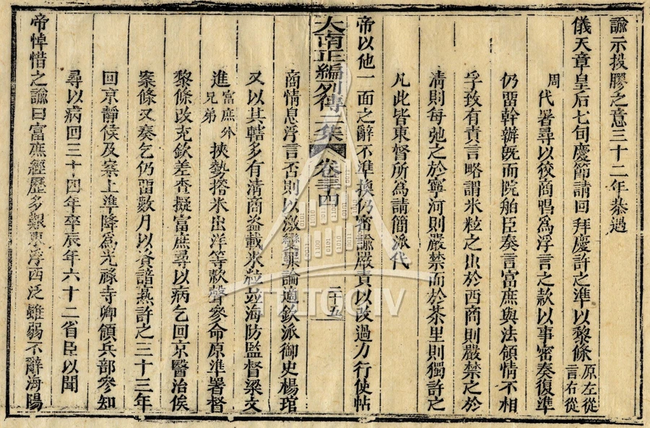 諭示投膠之意三十二年恭遇
儀天章皇后七旬慶節請回拜慶許之準以黎條原左從言右從
周代署尋以狡商唱爲浮言之款以事密奏復準
仍留幹辦旣而院舶臣奏言富庶與法領情不相
孚致有責言略謂米粒之出於西商則嚴禁之於
清則每弛之於寧河則嚴禁而於茶里則獨許之
凡此皆東督所爲請簡派代
帝以他一面之辭不準換仍密諭嚴責以改過力行使帖
大南正編列傳二集 卷三十四 二十五
商情息浮言否則以激變衆論適欽派御史楊琯
又以其轄多有清商盜載米粒並海防監督梁文
進富庶外兄弟挾勢搭米出洋等款聲參命原準署督
黎條改充欽差查擬富庶尋以病乞回京醫治俟
案條又奏乞仍留數月以資諳熟許之三十三年
回京靜候及案上準降爲光祿寺卿領兵部參知
尋以病回三十四年卒辰年六十二省臣以聞
帝悼惜之諭曰富庶經歷多艱浮西泛雖弱不辭海陽
TTLTQG IV